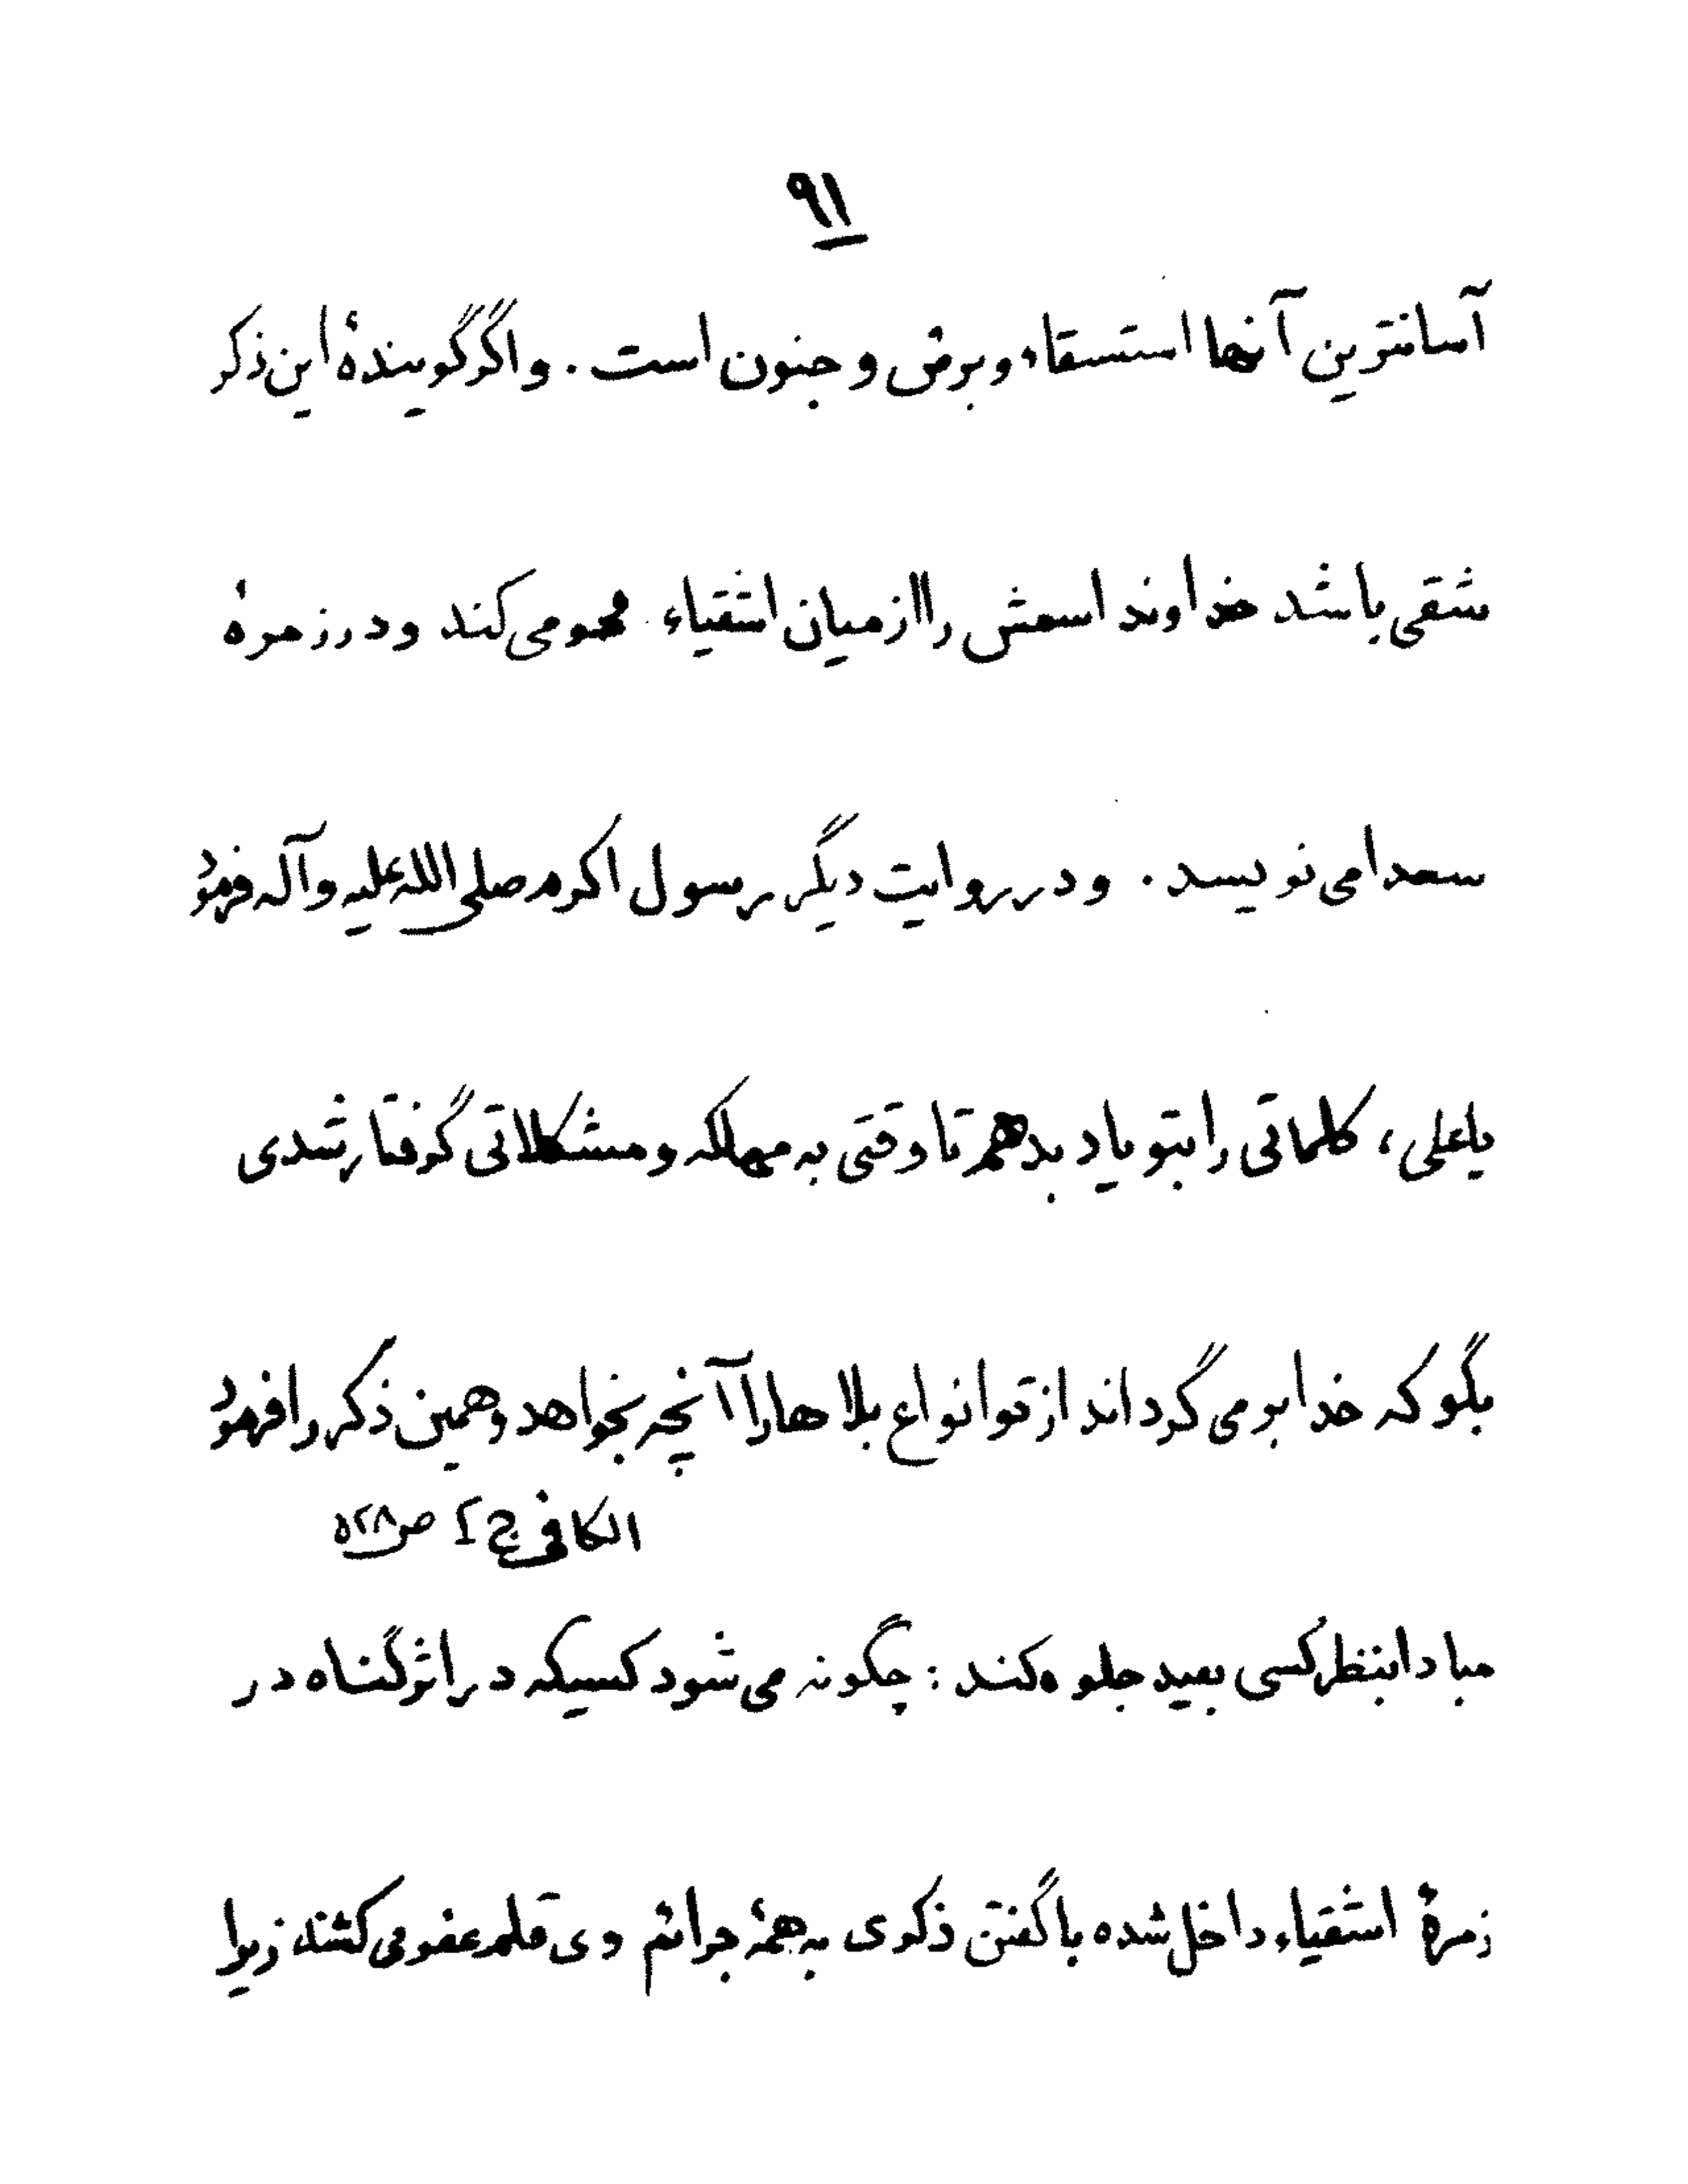 ۹۱
آسانترین آنها استسقاء و برص و جنون است . و اگر گویندهٔ این ذکر
شقی باشد خداوند اسمش را از میان اشقیاء محو می کند و در زمرهٔ
سعدا می نویسد . و در روایت دیگر رسول اکرم صلی الله علیه و آله فرمود
یا علی ، کلماتی را بتو یاد بدهم تا وقتی به مهلکه و مشکلاتی گرفتار شدی
بگو که خدا بر می گرداند از تو انواع بلاها را آنچه بخواهد و همین ذکر را فرمود
الکافی ج ۲ ص ۵۲۸
مبادا بنظر کسی بعید جلوه کند : چگونه می شود کسیکه در اثر گناه در
زمرهٔ اشقیاء داخل شده با گفتن ذکری به همهٔ جرائم وی قلم عفو می کشند زیرا